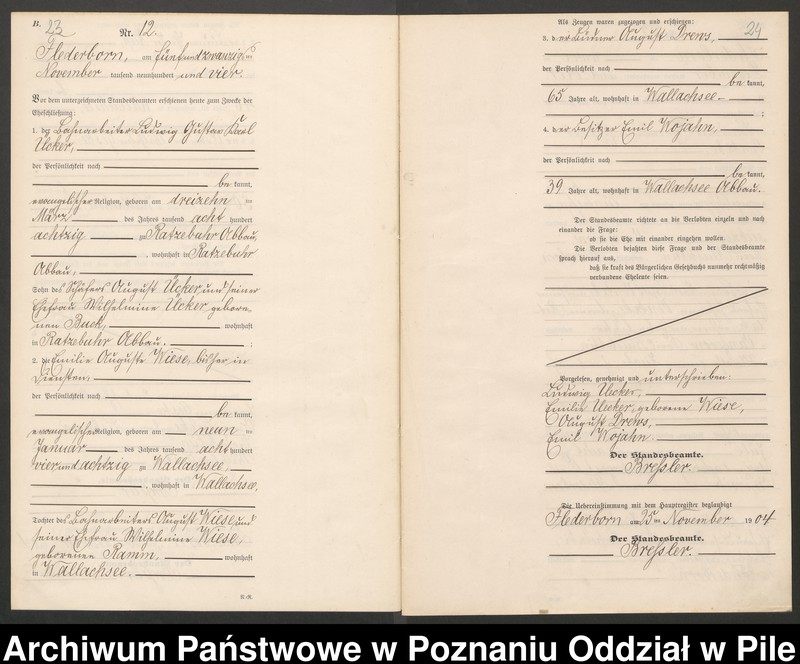 B. 23
Nr. 12.
Flederborn, am fünfundzwanzigsten
November tausend neunhundert und vier.
Vor dem unterzeichneten Standesbeamten erschienen heute zum Zwecke der
Eheschließung:
1. der Bahnarbeiter Ludwig Gustav Karl
Uecker,
der Persönlichkeit nach
be kannt,
evangelischer Religion, geboren am dreizehnten
März des Jahres tausend acht hundert
achtzig zu Ratzebuhr Abbau,
, wohnhaft in Ratzebuhr
Abbau,
Sohn des Schäfers August Uecker und seiner
Ehefrau Wilhelmine Uecker gebore-
nen Buck, wohnhaft
in Ratzebuhr Abbau. ;
2. die Emilie Auguste Wiese, bisher in
Diensten,
der Persönlichkeit nach
be kannt,
evangelischer Religion, geboren am neunten
Januar des Jahres tausend acht hundert
vierundachtzig zu Wallachsee,
, wohnhaft in Wallachsee,
Tochter des Bahnarbeiters August Wiese und
seiner Ehefrau Wilhelmine Wiese,
geborenen Ramm, wohnhaft
in Wallachsee.
Als Zeugen waren zugezogen und erschienen:
24
3. der August Drews,
der Persönlichkeit nach
be kannt,
65 Jahre alt, wohnhaft in Wallachsee
;
4. der Besitzer Emil Wojahn,
der Persönlichkeit nach
be kannt,
39 Jahre alt, wohnhaft in Wallachsee Abbau.
Der Standesbeamte richtete an die Verlobten einzeln und nach
einander die Frage:
ob sie die Ehe mit einander eingehen wollen.
Die Verlobten bejahten diese Frage und der Standesbeamte
sprach hierauf aus,
daß sie kraft des Bürgerlichen Gesetzbuchs nunmehr rechtmäßig
verbundene Eheleute seien.
Vorgelesen, genehmigt und unterschrieben:
Ludwig Uecker,
Emilie Uecker, geborene Wiese,
August Drews,
Emil Wojahn.
Der Standesbeamte.
Bressler.
Die Uebereinstimmung mit dem Hauptregister beglaubigt
Flederborn am 25ten November 1904
Der Standesbeamte.
Bressler.
Archiwum Państwowe w Poznaniu Oddział w Pile